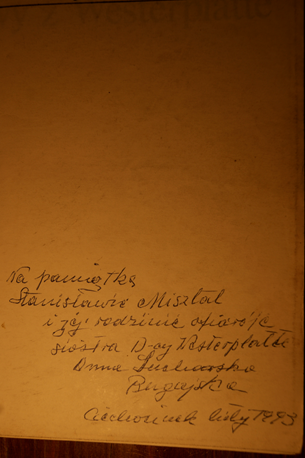 y z Westerplatte
Na pamiątkę
Stanisławie Misztal
i jéj rodzinie ofiaruje
siostra D-cy Westerplatte
Anna Sucharska
Bugajska
Ciechocinek luty 1993